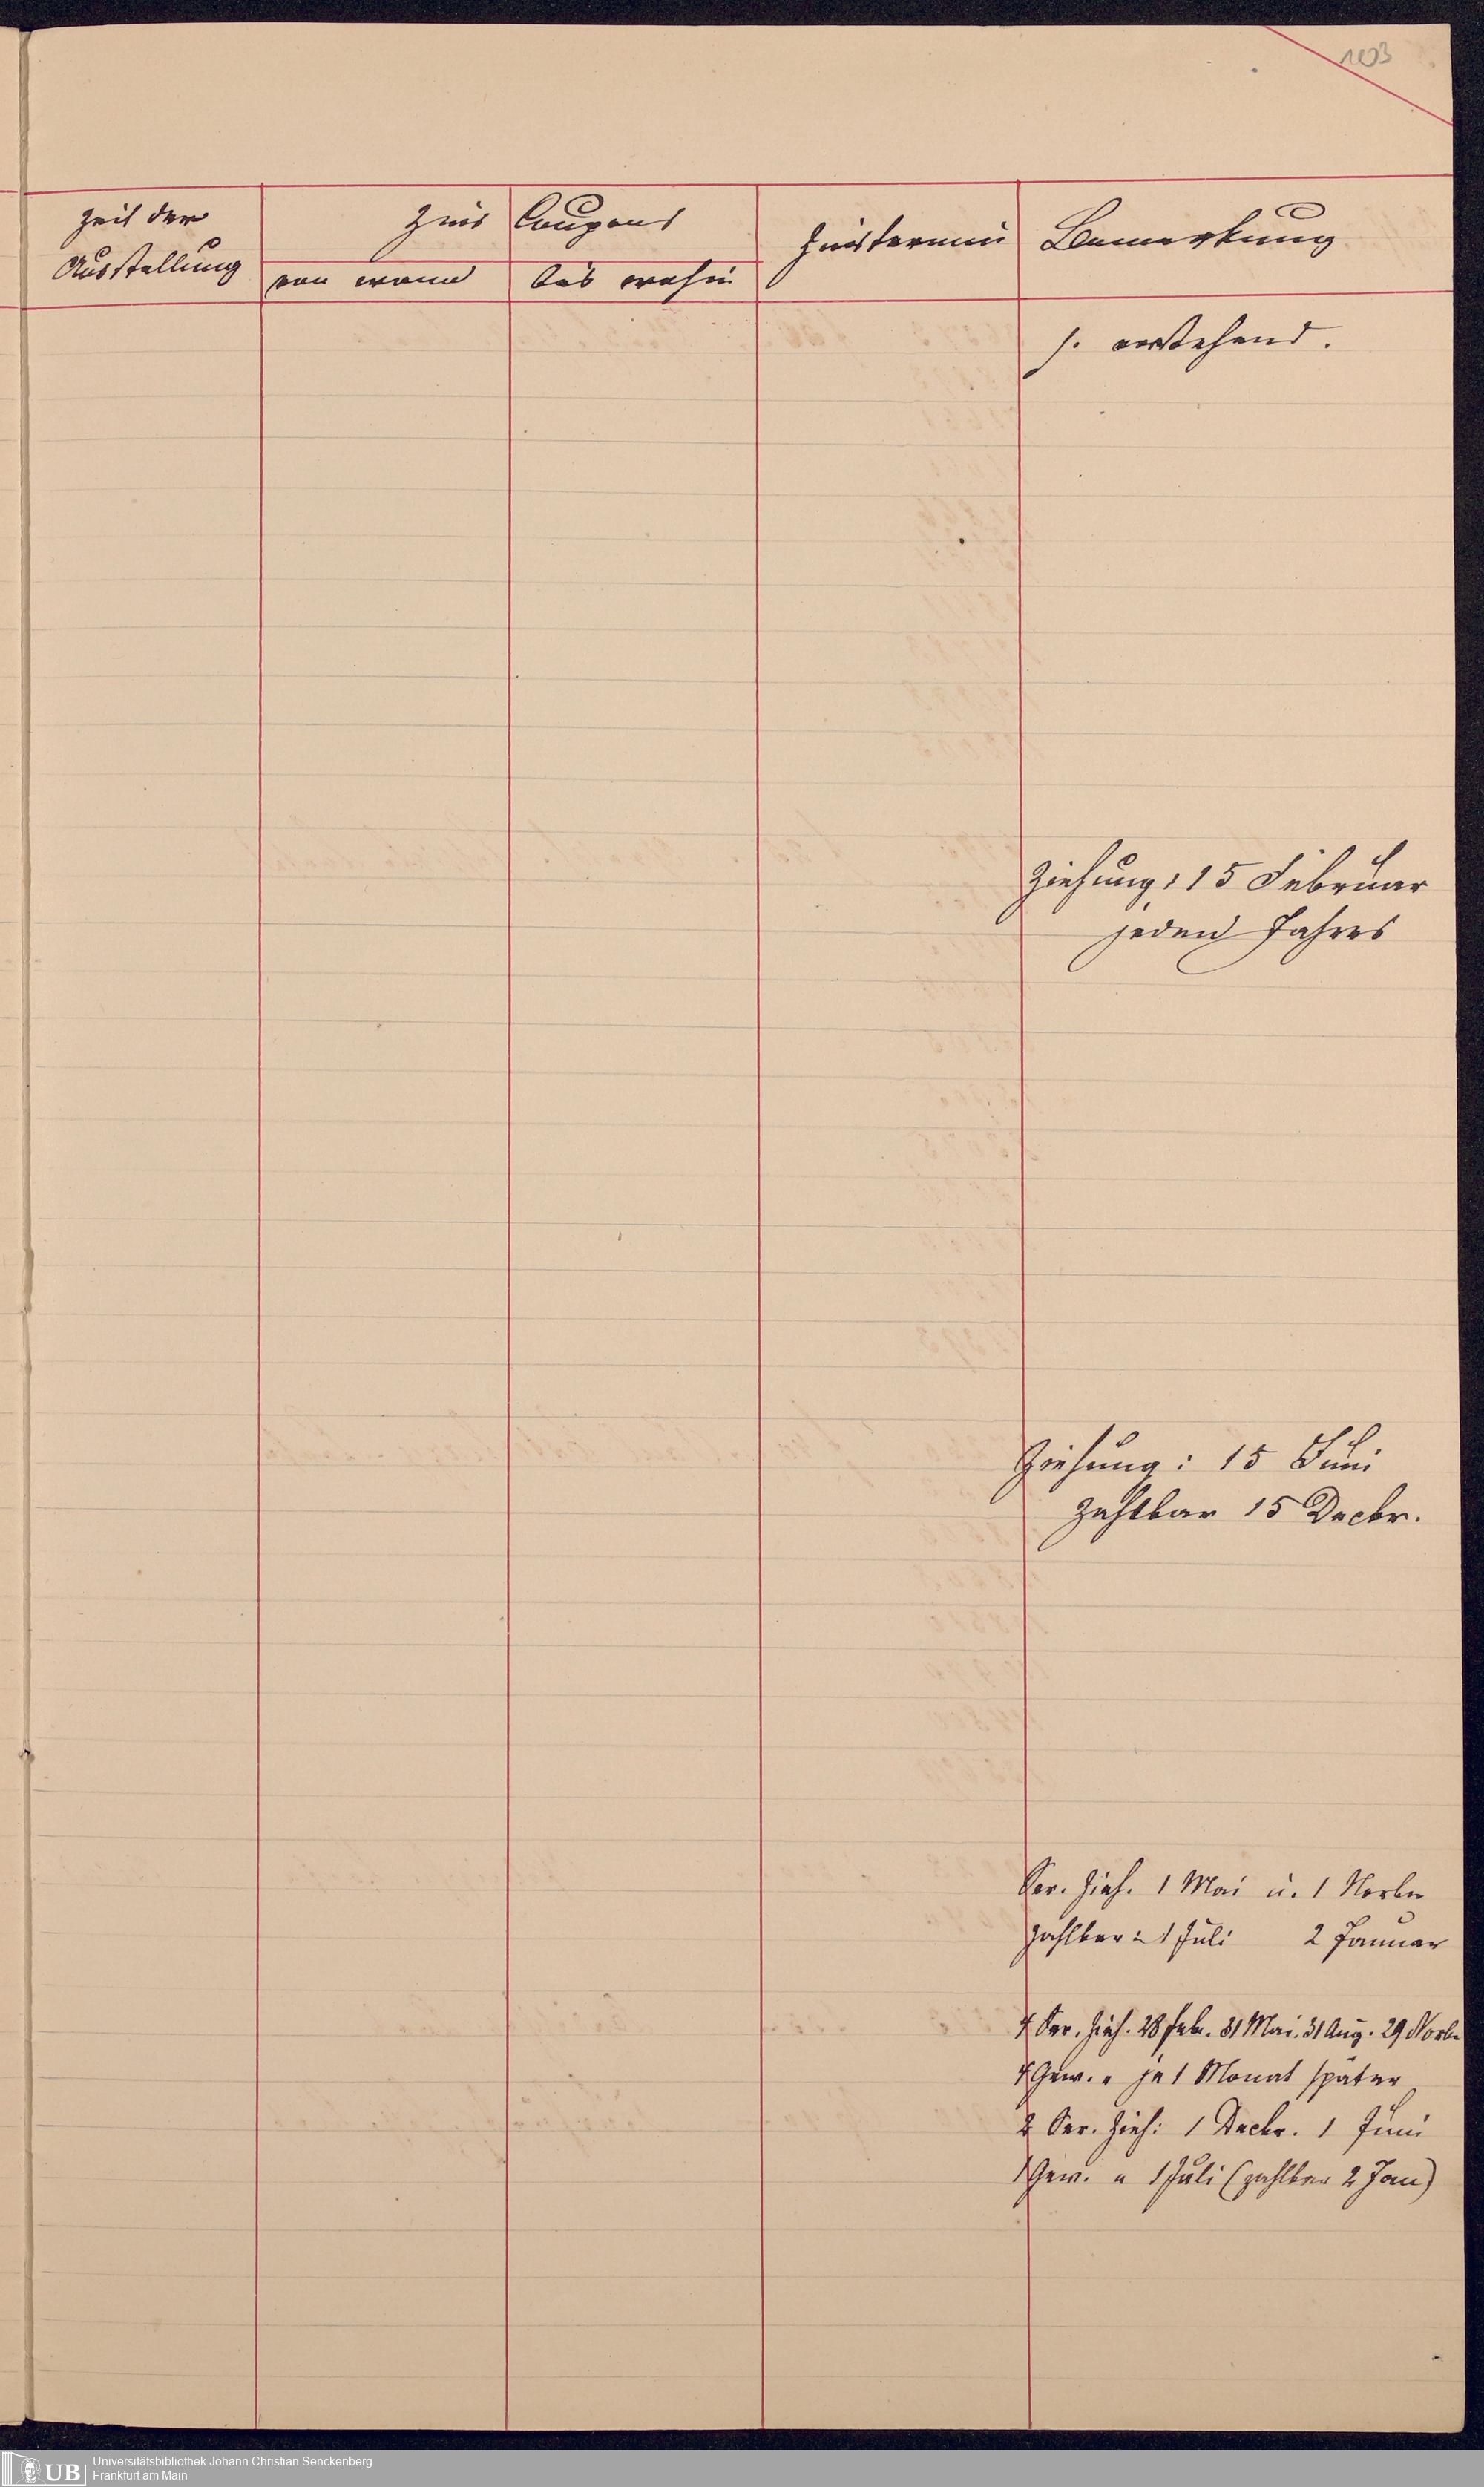 103
Zeit der
Ausstellung
Zins Coupons
von wann
bis wohin
Zinstermin
Bemerkung
s. vorstehend.
Ziehung: 15 Februar
jeden Jahres
Ziehung: 15 Juni
zahlbar 15 Decbr.
Ser. Zieh. 1 Mai u. 1 Novbr
zahlbar: 1 Juli 2 Januar
4 Ser. Zieh. 28 Febr. 31 Mai. 31 Aug. 29 Novbr
4 Gew. " je 1 Monat später
2 Ser. Zieh: 1 Decbr. 1 Juni
1 Gew. " 1 Juli (zahlbar 2 Jan)
UB
Universitätsbibliothek Johann Christian Senckenberg
Frankfurt am Main